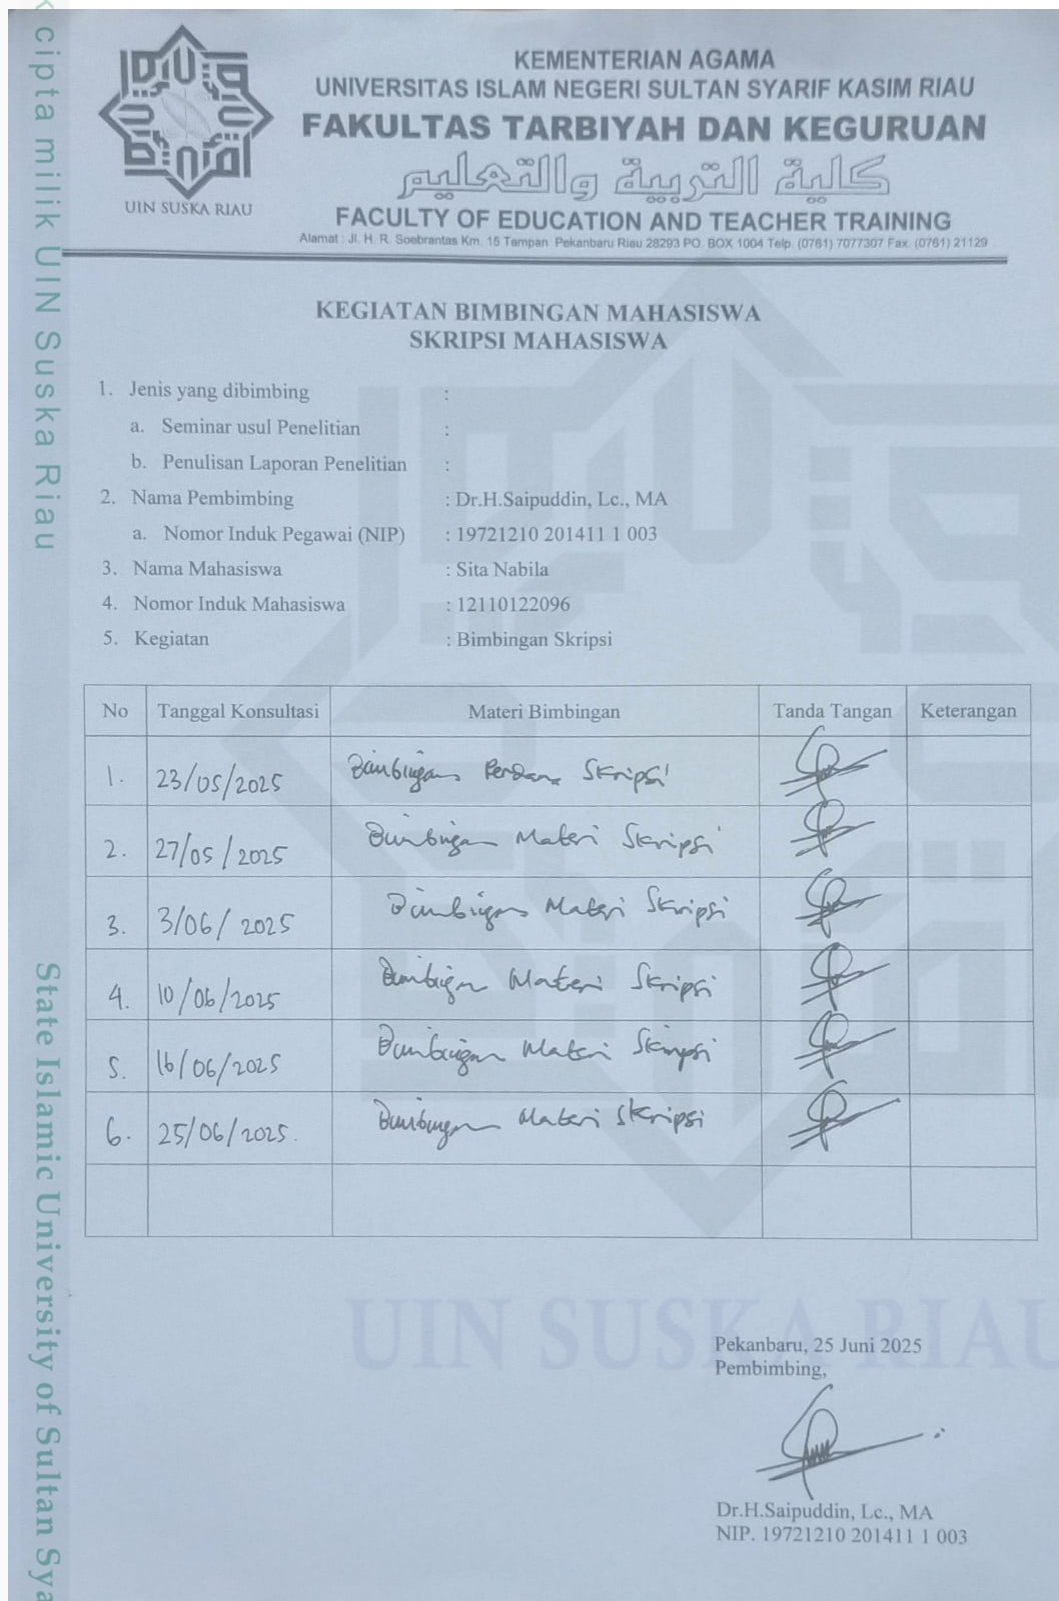 UIN SUSKA RIAU
KEMENTERIAN AGAMA
UNIVERSITAS ISLAM NEGERI SULTAN SYARIF KASIM RIAU
FAKULTAS TARBIYAH DAN KEGURUAN
كلية التربية والتعليم
FACULTY OF EDUCATION AND TEACHER TRAINING
Alamat : Jl. H. R. Soebrantas Km. 15 Tampan Pekanbaru Riau 28293 PO. BOX 1004 Telp. (0761) 7077307 Fax. (0761) 21129
KEGIATAN BIMBINGAN MAHASISWA
SKRIPSI MAHASISWA
1. Jenis yang dibimbing :
a. Seminar usul Penelitian :
b. Penulisan Laporan Penelitian :
2. Nama Pembimbing : Dr.H.Saipuddin, Lc., MA
a. Nomor Induk Pegawai (NIP) : 19721210 201411 1 003
3. Nama Mahasiswa : Sita Nabila
4. Nomor Induk Mahasiswa : 12110122096
5. Kegiatan : Bimbingan Skripsi
No Tanggal Konsultasi Materi Bimbingan Tanda Tangan Keterangan
1. 23/05/2025 Bimbingan Perdana Skripsi
2. 27/05/2025 Bimbingan Materi Skripsi
3. 3/06/2025 Bimbingan Materi Skripsi
4. 10/06/2025 Bimbingan Materi Skripsi
5. 16/06/2025 Bimbingan Materi Skripsi
6. 25/06/2025. Bimbingan Materi Skripsi
UIN SUSKA RIAU
Pekanbaru, 25 Juni 2025
Pembimbing,
Dr.H.Saipuddin, Lc., MA
NIP. 19721210 201411 1 003
cipta milik UIN Suska Riau
State Islamic University of Sultan Sya